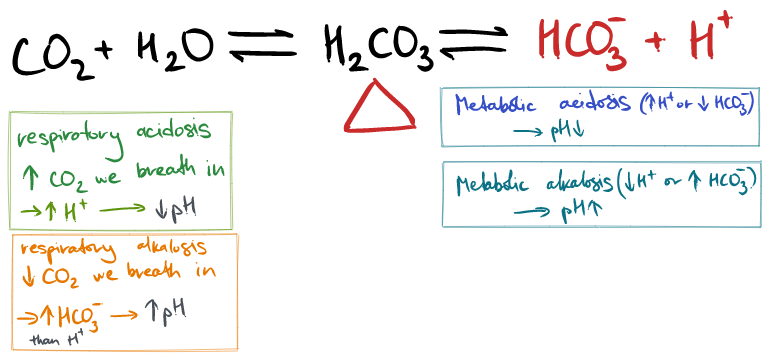 CO₂ + H₂O ⇌ H₂CO₃ ⇌ HCO₃⁻ + H⁺
respiratory acidosis
↑ CO₂ we breath in
→ ↑ H⁺ → ↓ pH
respiratory alkalosis
↓ CO₂ we breath in
→ ↑ HCO₃⁻ → ↑ pH
than H⁺
Metabolic acidosis (↑ H⁺ or ↓ HCO₃⁻)
→ pH ↓
Metabolic alkalosis (↓ H⁺ or ↑ HCO₃⁻)
→ pH ↑